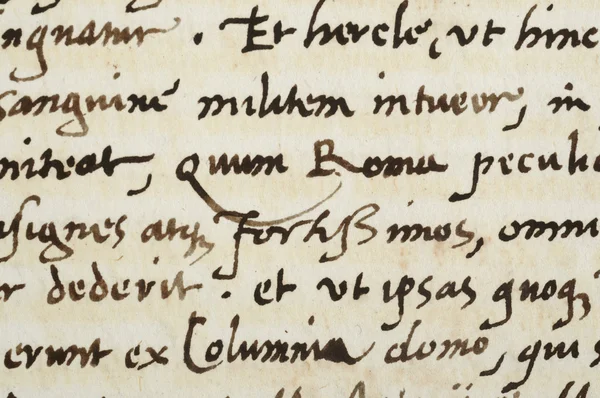 nguatur. Et hercle, ut hinc
sanguine militem intueor, in
niteat, quum Roma peculia
signes atq fortissimos, omni
r dederit. et ut ipsas quoq
erunt ex Columnia domo, qui s